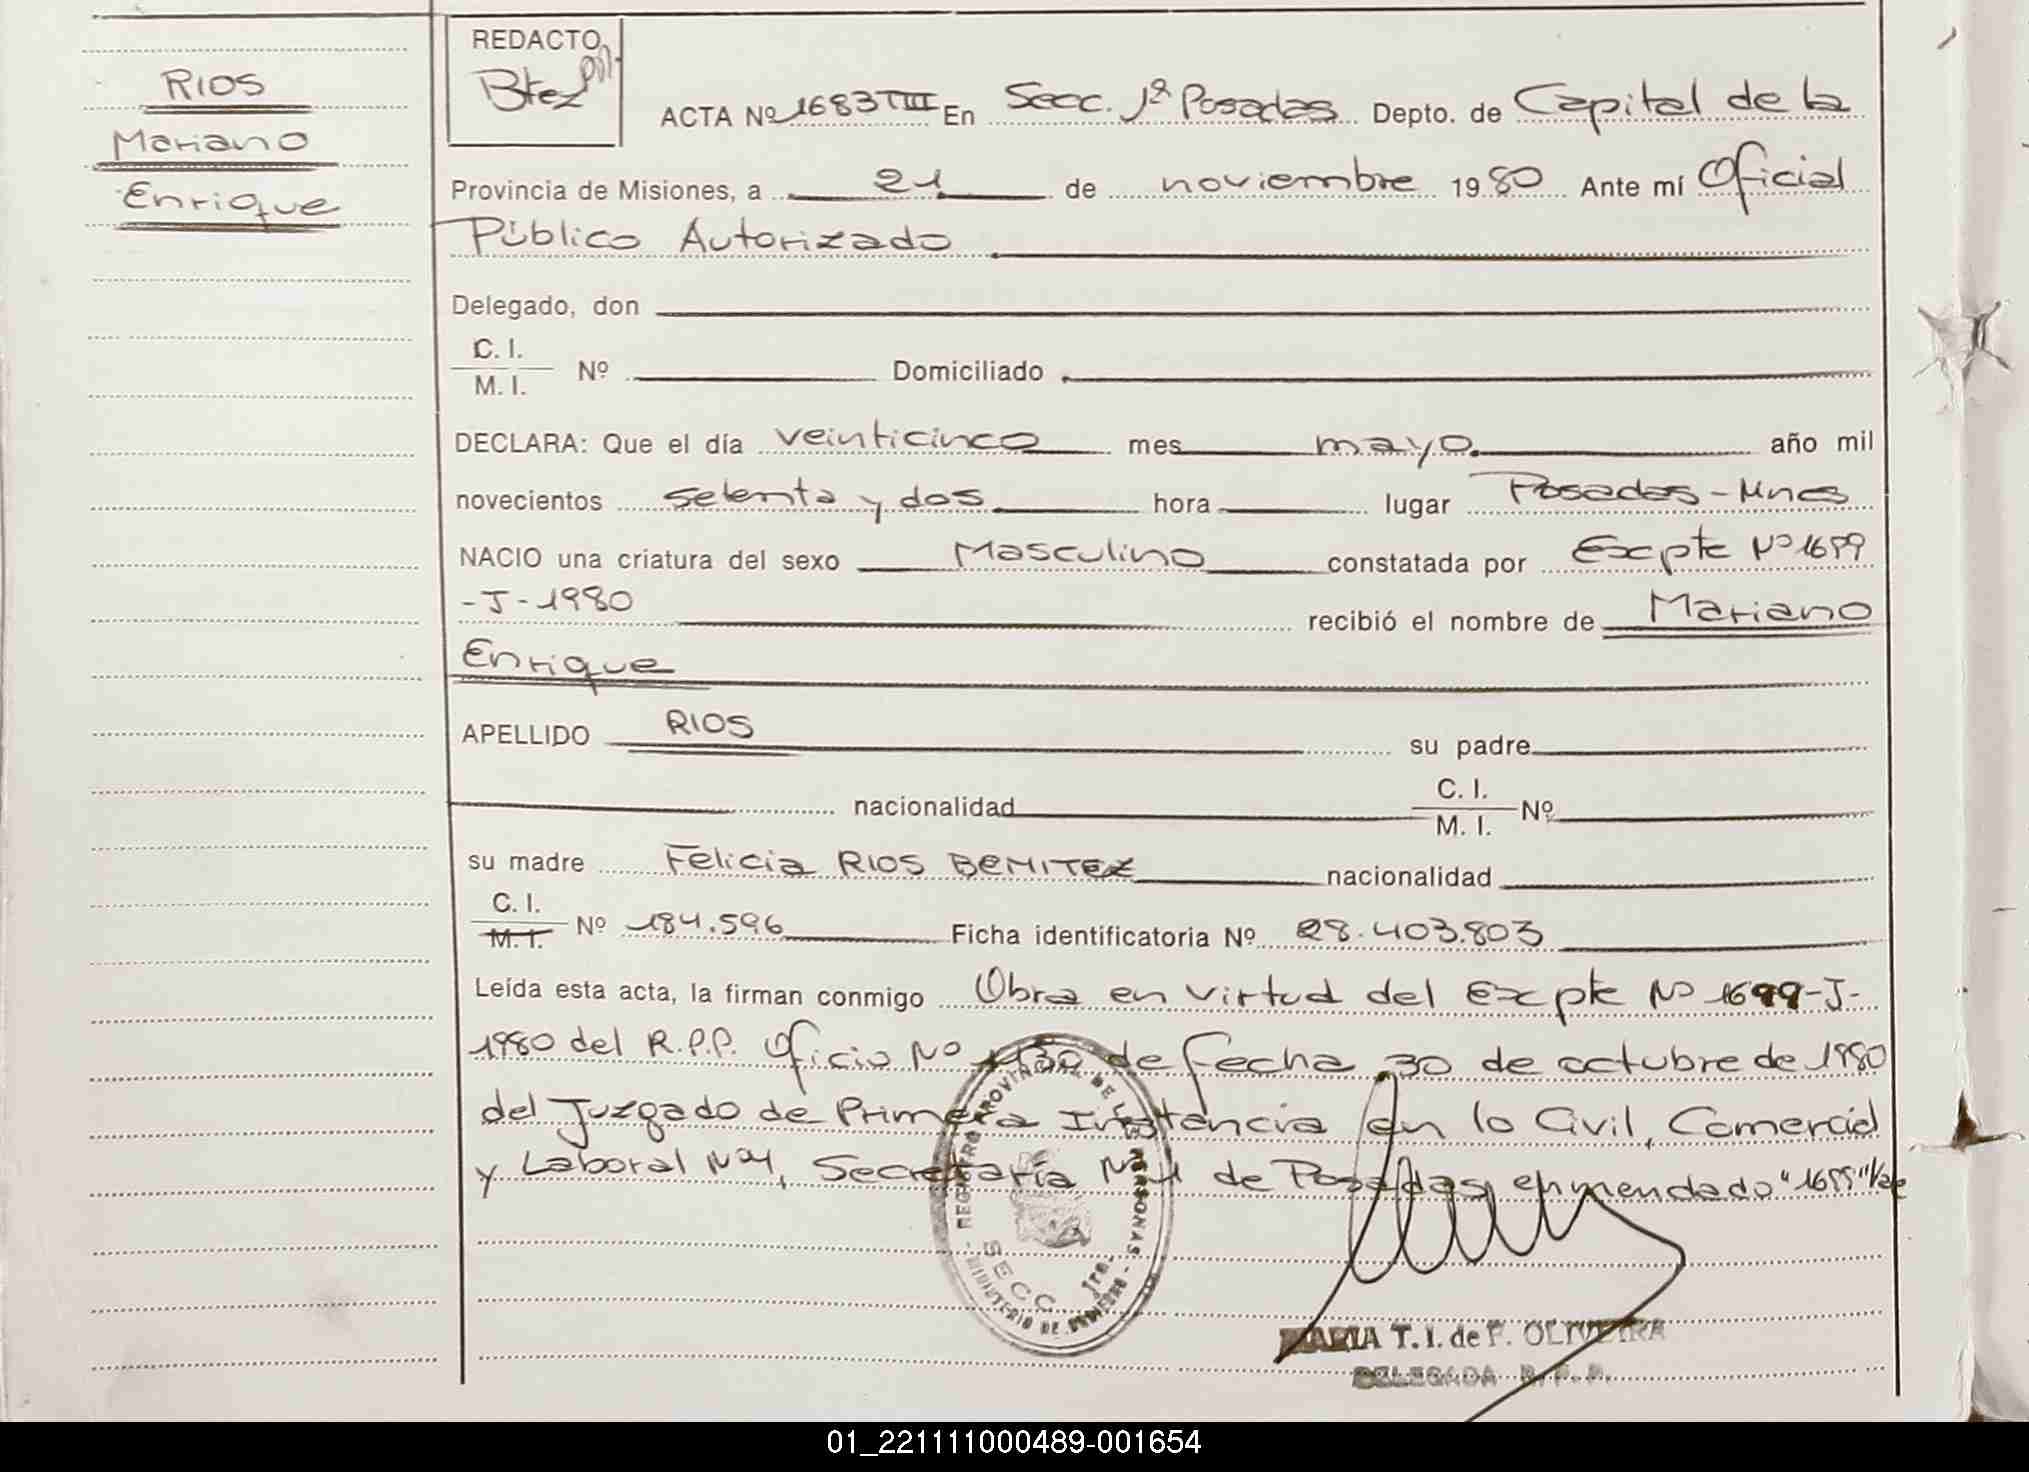 RIOS
Mariano
Enrique
REDACTO
Btez
ACTA Nº 1683 TIII En Secc. 1ª Posadas Depto. de Capital de la
Provincia de Misiones, a 21 de noviembre 1980 Ante mí Oficial
Público Autorizado
Delegado, don
C. I.
M. I. Nº Domiciliado
DECLARA: Que el día veinticinco mes mayo año mil
novecientos setenta y dos hora lugar Posadas - Mnes
NACIO una criatura del sexo Masculino constatada por Excpte Nº 1699
- J - 1980 recibió el nombre de Mariano
Enrique
APELLIDO RIOS su padre
nacionalidad C. I. M. I. Nº
su madre Felicia RIOS BENITEZ nacionalidad
C. I.
M. I. Nº 184.596 Ficha identificatoria Nº 28.403.803
Leída esta acta, la firman conmigo Obra en virtud del Excpte Nº 1699-J-
1980 del R.P.P. Oficio Nº de fecha 30 de octubre de 1980
del Juzgado de Primera Instancia en lo Civil, Comercial
y Laboral Nº 4, Secretaría Nº de Posadas, enmendado "1699" Vale
REGISTRO PROVINCIAL DE LAS PERSONAS - MINISTERIO DE GOBIERNO -
SECC. 1ra.
MARIA T. I. de F. OLIVEIRA
DELEGADA R. P. P.
01_221111000489-001654